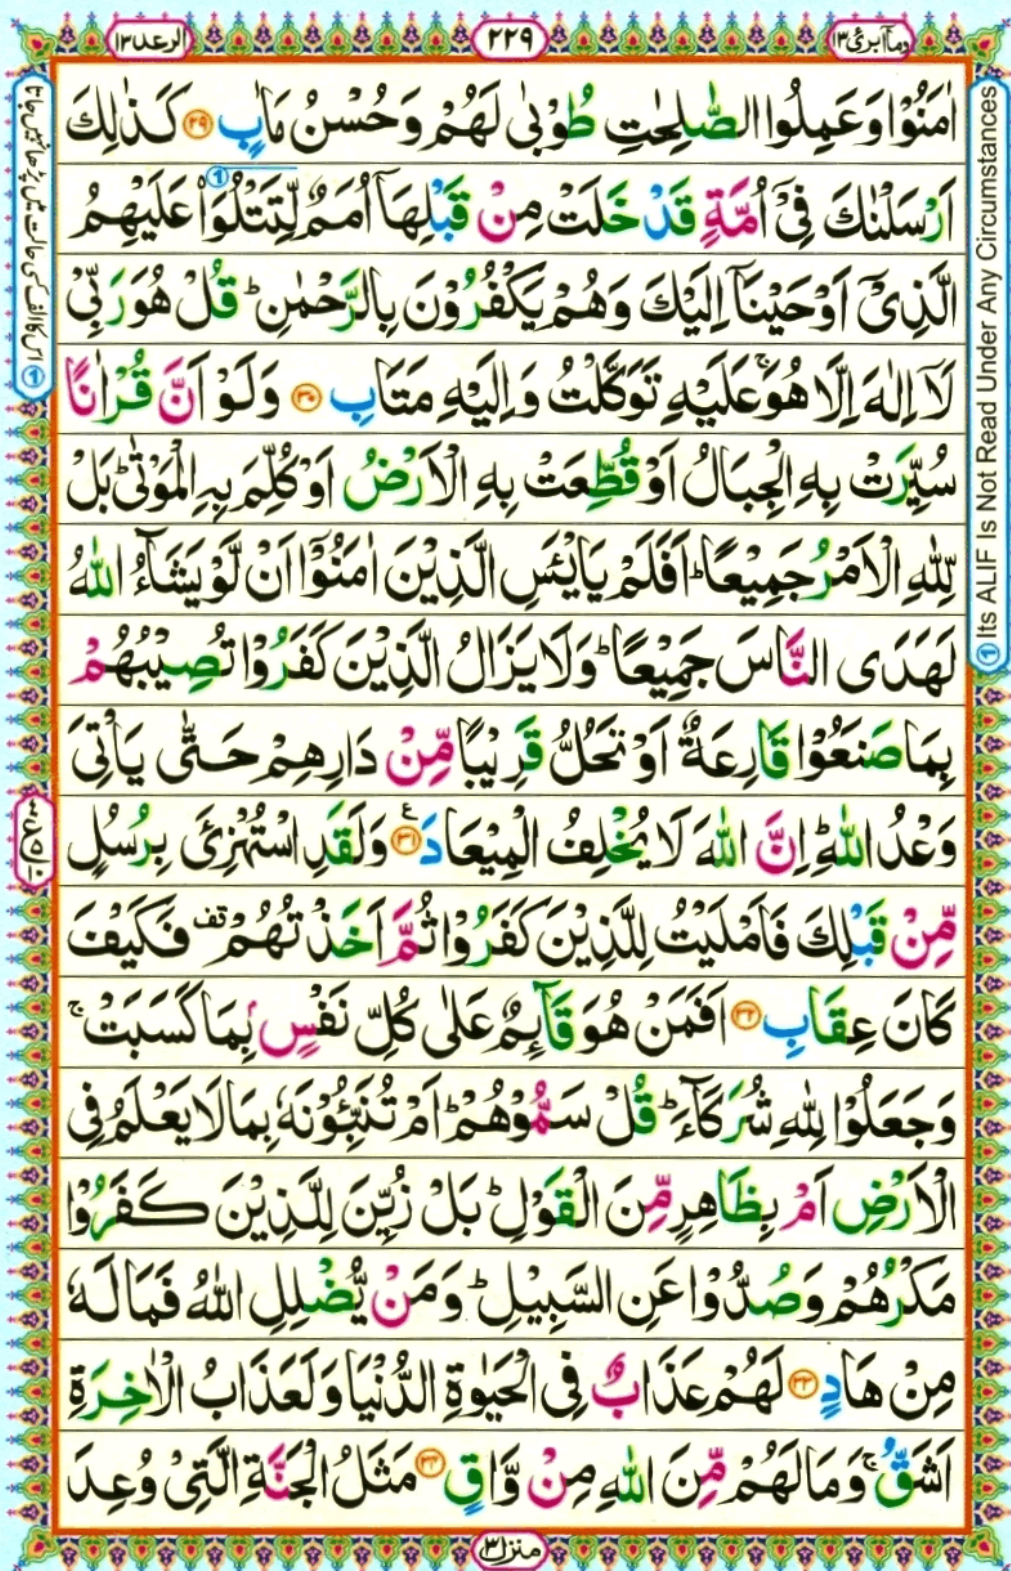 وماۤ ابرئ ١٣
٢٢٩
الرعد ١٣
اٰمَنُوْا وَعَمِلُوا الصّٰلِحٰتِ طُوْبٰى لَهُمْ وَحُسْنُ مَاٰبٍ ﴿٢٩﴾ كَذٰلِكَ
اَرْسَلْنٰكَ فِیْۤ اُمَّةٍ قَدْ خَلَتْ مِنْ قَبْلِهَاۤ اُمَمٌ لِّتَتْلُوَاۡ عَلَیْهِمُ
الَّذِیْۤ اَوْحَیْنَاۤ اِلَیْكَ وَهُمْ یَكْفُرُوْنَ بِالرَّحْمٰنِ ؕ قُلْ هُوَ رَبِّیْ
لَاۤ اِلٰهَ اِلَّا هُوَ ۚ عَلَیْهِ تَوَكَّلْتُ وَاِلَیْهِ مَتَابِ ﴿٣٠﴾ وَلَوْ اَنَّ قُرْاٰنًا
سُیِّرَتْ بِهِ الْجِبَالُ اَوْ قُطِّعَتْ بِهِ الْاَرْضُ اَوْ كُلِّمَ بِهِ الْمَوْتٰى ؕ بَلْ
لِّلّٰهِ الْاَمْرُ جَمِیْعًا ؕ اَفَلَمْ یَایْـَٔسِ الَّذِیْنَ اٰمَنُوْۤا اَنْ لَّوْ یَشَآءُ اللّٰهُ
لَهَدَى النَّاسَ جَمِیْعًا ؕ وَلَا یَزَالُ الَّذِیْنَ كَفَرُوْا تُصِیْبُهُمْ
بِمَا صَنَعُوْا قَارِعَةٌ اَوْ تَحُلُّ قَرِیْبًا مِّنْ دَارِهِمْ حَتّٰى یَاْتِیَ
وَعْدُ اللّٰهِ ؕ اِنَّ اللّٰهَ لَا یُخْلِفُ الْمِیْعَادَ ﴿٣١﴾ع وَلَقَدِ اسْتُهْزِئَ بِرُسُلٍ
مِّنْ قَبْلِكَ فَاَمْلَیْتُ لِلَّذِیْنَ كَفَرُوْا ثُمَّ اَخَذْتُهُمْ قف فَكَیْفَ
كَانَ عِقَابِ ﴿٣٢﴾ اَفَمَنْ هُوَ قَآىِٕمٌ عَلٰى كُلِّ نَفْسٍۭ بِمَا كَسَبَتْ ۚ
وَجَعَلُوْا لِلّٰهِ شُرَكَآءَ ؕ قُلْ سَمُّوْهُمْ ؕ اَمْ تُنَبِّـُٔوْنَهٗ بِمَا لَا یَعْلَمُ فِی
الْاَرْضِ اَمْ بِظَاهِرٍ مِّنَ الْقَوْلِ ؕ بَلْ زُیِّنَ لِلَّذِیْنَ كَفَرُوْا
مَكْرُهُمْ وَصُدُّوْا عَنِ السَّبِیْلِ ؕ وَمَنْ یُّضْلِلِ اللّٰهُ فَمَا لَهٗ
مِنْ هَادٍ ﴿٣٣﴾ لَهُمْ عَذَابٌ فِی الْحَیٰوةِ الدُّنْیَا وَلَعَذَابُ الْاٰخِرَةِ
اَشَقُّ ۚ وَمَا لَهُمْ مِّنَ اللّٰهِ مِنْ وَّاقٍ ﴿٣٤﴾ مَثَلُ الْجَنَّةِ الَّتِیْ وُعِدَ
منزل ٣
① Its ALIF Is Not Read Under Any Circumstances
① اس کا الف کسی حالت میں پڑھا نہیں جاتا